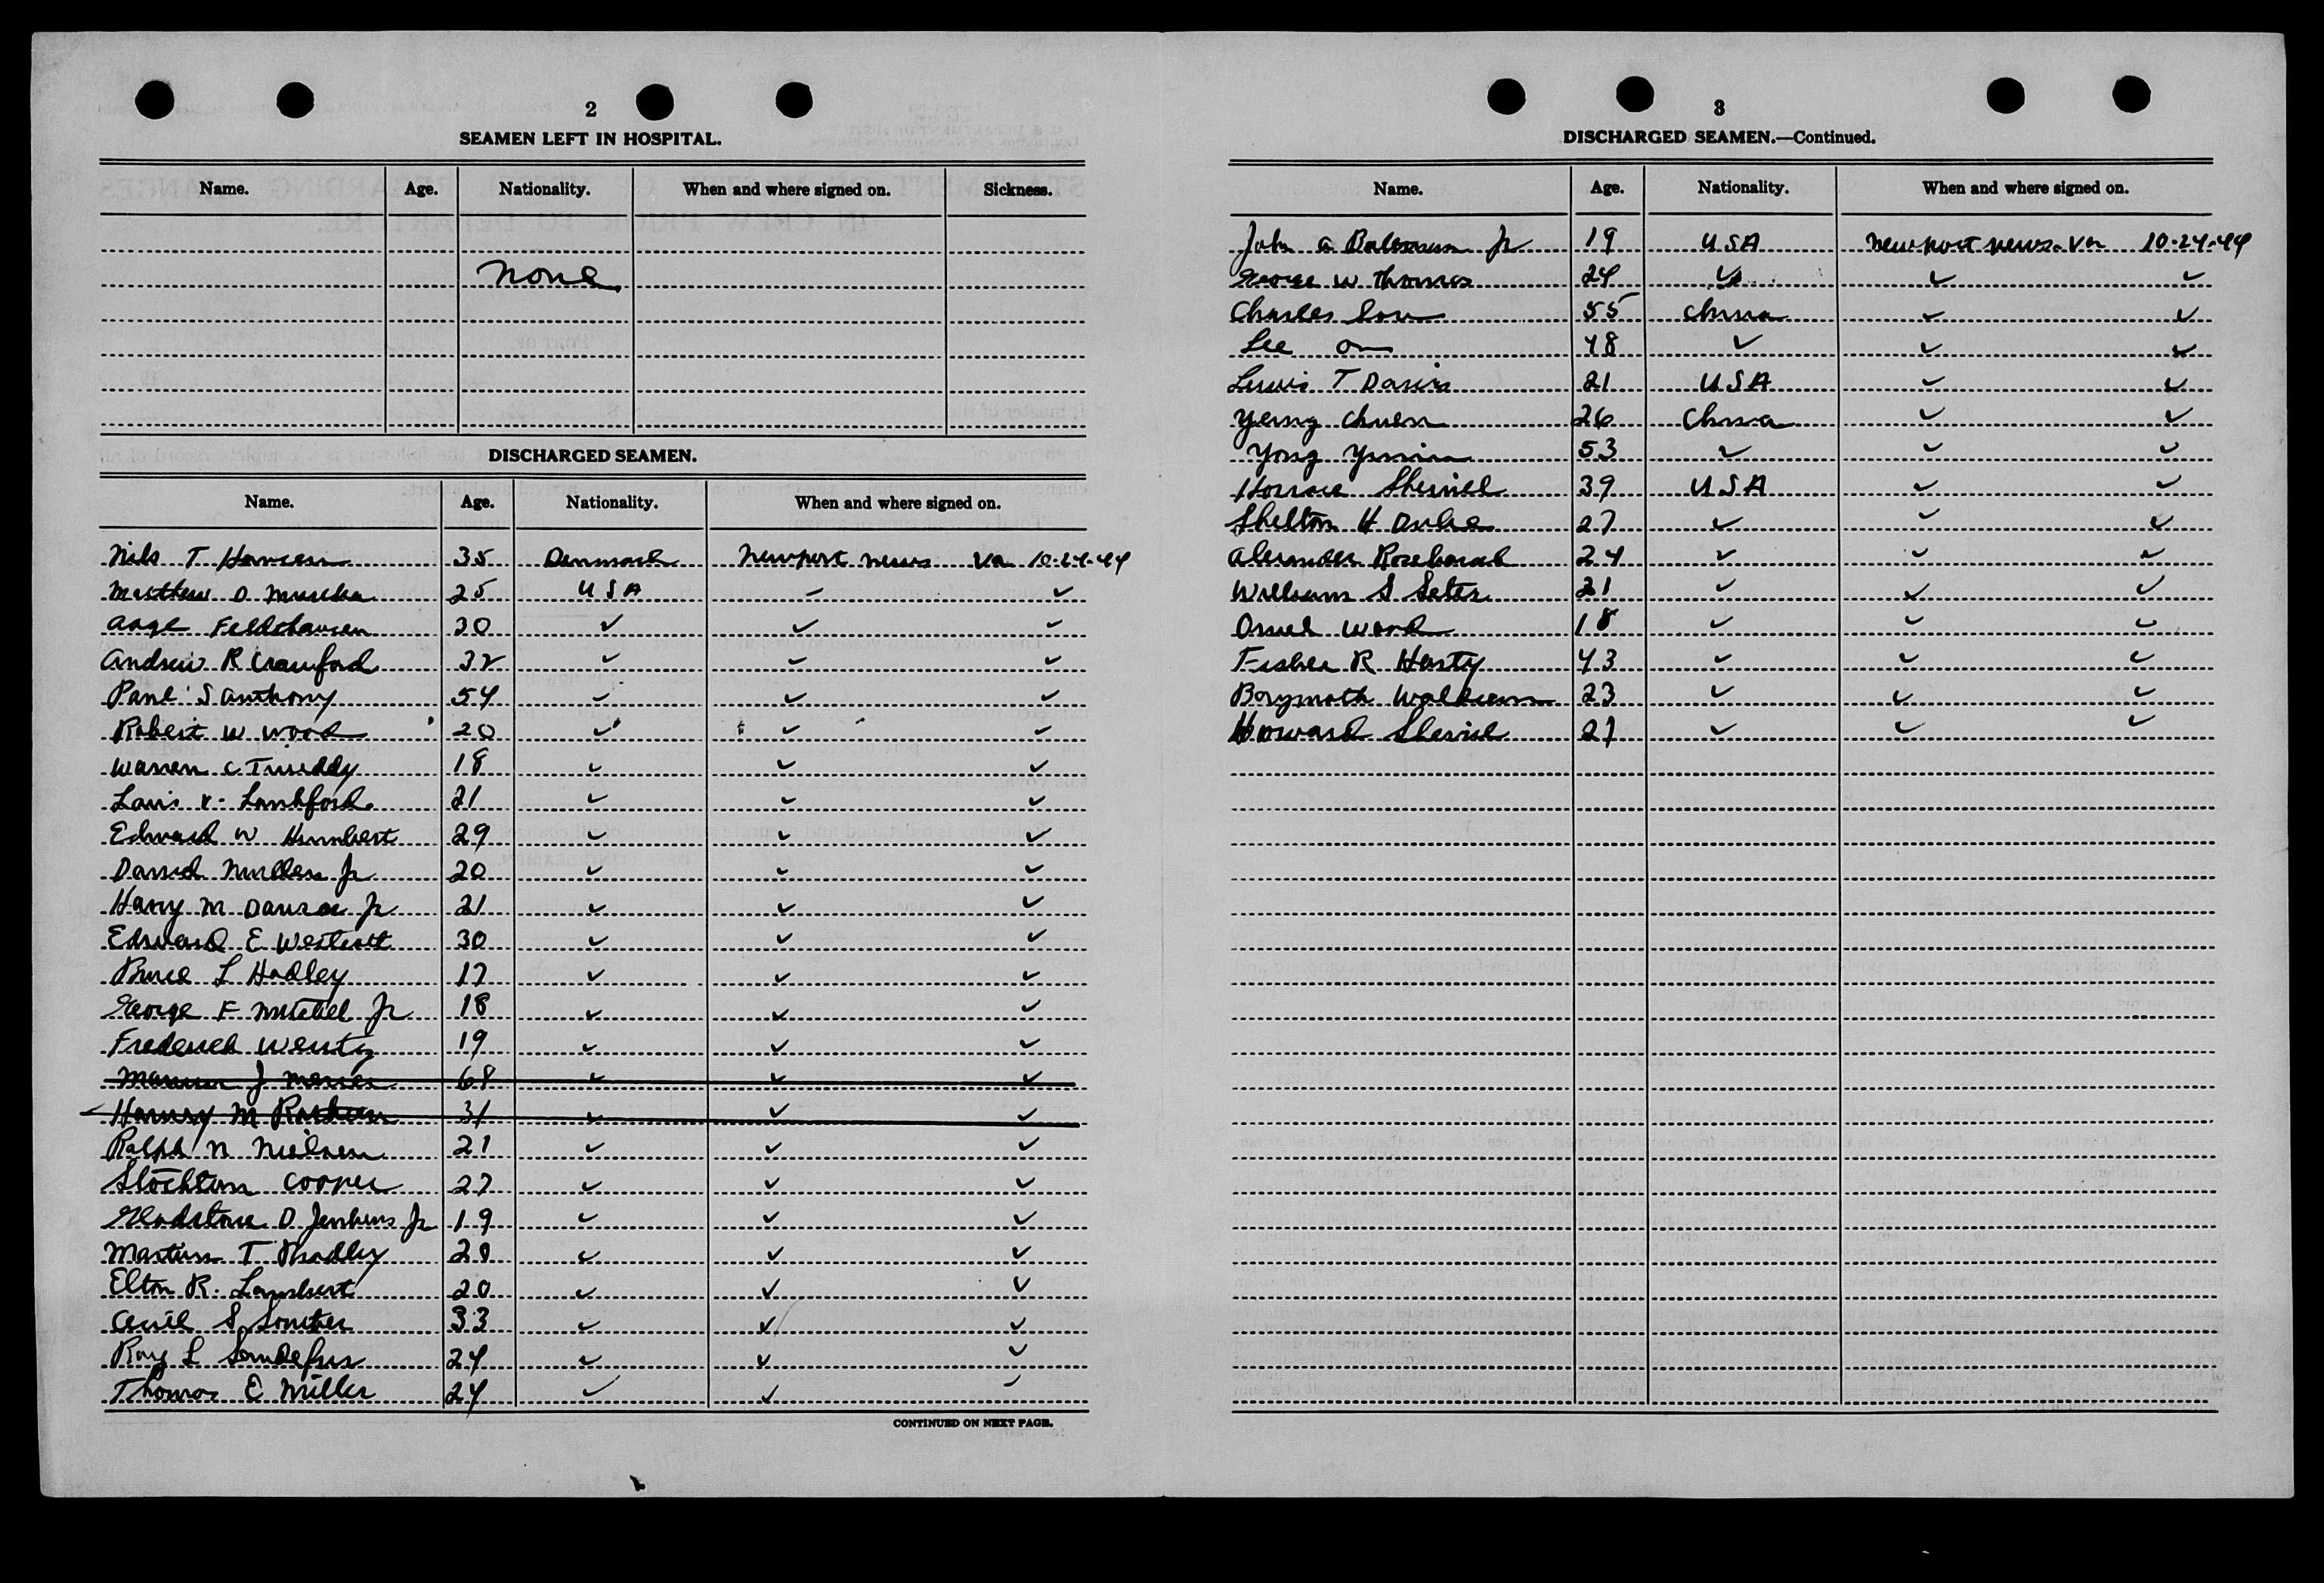 2
SEAMEN LEFT IN HOSPITAL.
Name. Age. Nationality. When and where signed on. Sickness.
None
DISCHARGED SEAMEN.
Name. Age. Nationality. When and where signed on.
Nils T Hansen 35 Denmark Newport News Va 10-24-44
Matthew D 25 USA ✓ ✓
Aage Feldthausen 30 ✓ ✓ ✓
Andrew R Crawford 32 ✓ ✓ ✓
Paul S Anthony 54 ✓ ✓ ✓
Robert W Wood 20 ✓ ✓ ✓
Warren C 18 ✓ ✓ ✓
Louis V. Lankford 21 ✓ ✓ ✓
Edward W Humbert 29 ✓ ✓ ✓
David Mullen Jr 20 ✓ ✓ ✓
Harry M Jr 21 ✓ ✓ ✓
Edward E Westcott 30 ✓ ✓ ✓
Bruce L Hadley 17 ✓ ✓ ✓
George F Mitchell Jr 18 ✓ ✓ ✓
Frederick Wentz 19 ✓ ✓ ✓
J 68 ✓ ✓ ✓
Harvey M 31 ✓ ✓ ✓
Ralph N Nielsen 21 ✓ ✓ ✓
Stockton Cooper 27 ✓ ✓ ✓
Gladstone D Jenkins Jr 19 ✓ ✓ ✓
T Bradley 20 ✓ ✓ ✓
Elton R. Lambert 20 ✓ ✓ ✓
Cecil S 33 ✓ ✓ ✓
Roy L Sandefur 24 ✓ ✓ ✓
Thomas E Miller 24 ✓ ✓ ✓
CONTINUED ON NEXT PAGE.
3
DISCHARGED SEAMEN.—Continued.
Name. Age. Nationality. When and where signed on.
John Jr 19 USA Newport News Va 10-24-44
George W Thomas 24 ✓ ✓ ✓
Charles 55 China ✓ ✓
Lee On 48 ✓ ✓ ✓
Lewis T Davis 21 USA ✓ ✓
Yeung Chuen 26 China ✓ ✓
Yong 53 ✓ ✓ ✓
Horrace Sherrill 39 USA ✓ ✓
Shelton H Duke 27 ✓ ✓ ✓
Alexander 24 ✓ ✓ ✓
William S 21 ✓ ✓ ✓
Wood 18 ✓ ✓ ✓
Fisher R Hasty 43 ✓ ✓ ✓
23 ✓ ✓ ✓
Howard Sherrill 27 ✓ ✓ ✓